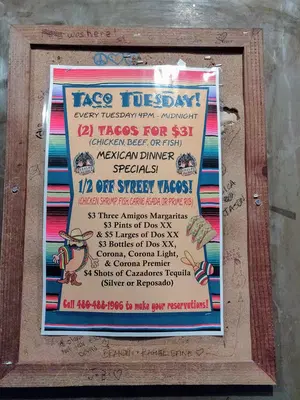 was here!
TACO TUESDAY!
EVERY TUESDAY! 4PM - MIDNIGHT
(2) TACOS FOR $3!
(CHICKEN, BEEF, OR FISH)
MEXICAN DINNER
SPECIALS!
1/2 OFF STREET TACOS!
(CHICKEN, SHRIMP, FISH, CARNE ASADA, OR PRIME RIB)
$3 Three Amigos Margaritas
$3 Pints of Dos XX
& $5 Larges of Dos XX
$3 Bottles of Dos XX,
Corona, Corona Light,
& Corona Premier
$4 Shots of Cazadores Tequila
(Silver or Reposado)
Call 480-488-1906 to make your reservations!